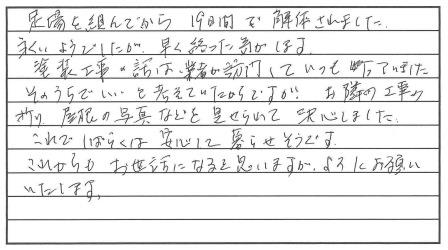 足場を組んでから 19日間で解体されました。
永いようでしたが、早く終った気がします。
塗装工事の話は、業者が訪問していつも断っていました
そのうちでいいと考えていたからですが、お隣の工事の
折り、屋根の写真などを見せられて決心しました。
これでしばらくは安心して暮らせそうです。
これからもお世話になると思いますが、よろしくお願い
いたします。